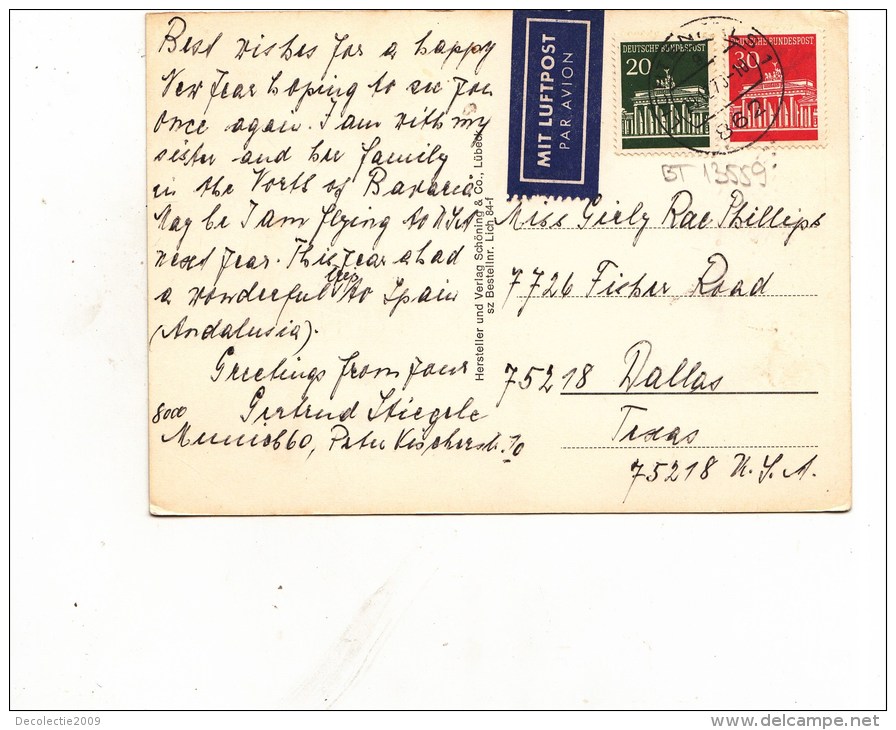 Best wishes for a happy
New Year hoping to see you
once again. I am with my
sister and her family
in the North of Bavaria
May be I am flying to USA
next year. This year a had
a wonderful trip to Spain
(Andalusia).
Greetings from your
Gertrud Stiegele
8000
Munich 60, Peter Vischerstr. 10
Hersteller und Verlag Schöning & Co., Lübeck
sz Bestellnr. Lich 84-f
MIT LUFTPOST
PAR AVION
DEUTSCHE BUNDESPOST
20
DEUTSCHE BUNDESPOST
30
862
BT 13559
Miss Girly Rae Phillips
7726 Fisher Road
75218 Dallas
Texas
75218 U.S.A.
Decolectie2009
delcampe.net